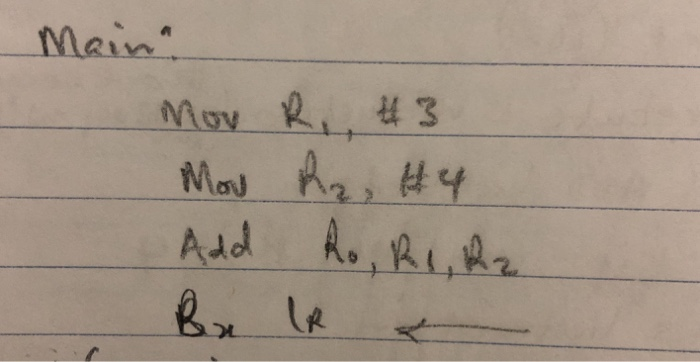 Main:
Mov R1, #3
Mov R2, #4
Add R0, R1, R2
Bx LR